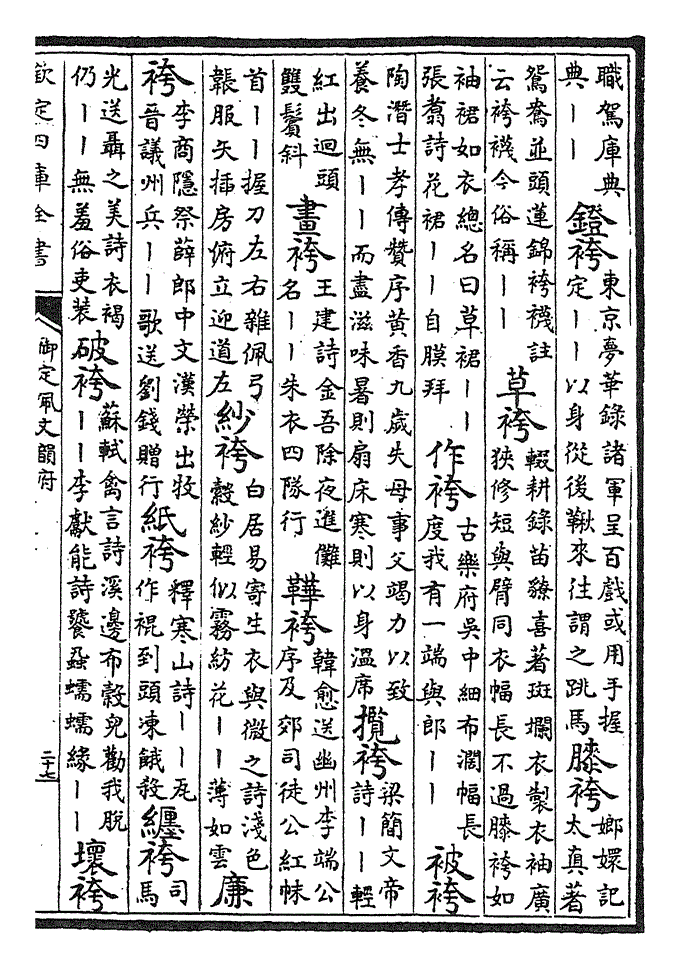 職駕庫典典｜｜鐙袴東京夢華錄諸軍呈百戲或用手握定｜｜以身從後鞦來往謂之跳馬膝袴嫏嬛記太真著
鴛鴦並頭蓮錦袴襪註云袴襪今俗稱｜｜草袴輟耕錄苗獠喜著斑斕衣製衣袖廣狹修短與臂同衣幅長不過膝袴如
袖裙如衣總名曰草裙｜｜張翥詩花裙｜｜自膜拜作袴古樂府吳中細布濶幅長度我有一端與郎｜｜被袴
陶潛士孝傳贊序黄香九歲失母事父竭力以致養冬無｜｜而盡滋味暑則扇床寒則以身溫席攬袴梁簡文帝詩｜｜輕
紅出迴頭雙鬢斜畫袴王建詩金吾除夜進儺名｜｜朱衣四隊行鞾袴韓愈送幽州李端公序及郊司徒公紅帓
首｜｜握刀左右雜佩弓韔服矢揷房俯立迎道左紗袴白居易寄生衣與微之詩淺色縠紗輕似霧紡花｜｜薄如雲廉
袴李商隱祭薛郎中文漢榮出牧晉議州兵｜｜歌送劉錢贈行紙袴釋寒山詩｜｜瓦作裩到頭凍餓殺纏袴司馬
光送聶之美詩衣褐仍｜｜無羞俗吏裝破袴蘇軾禽言詩溪邊布穀兒勸我脫｜｜李獻能詩饕蝨蠕蠕緣｜｜壞袴
欽定四庫全書
御定佩文韻府
二十七